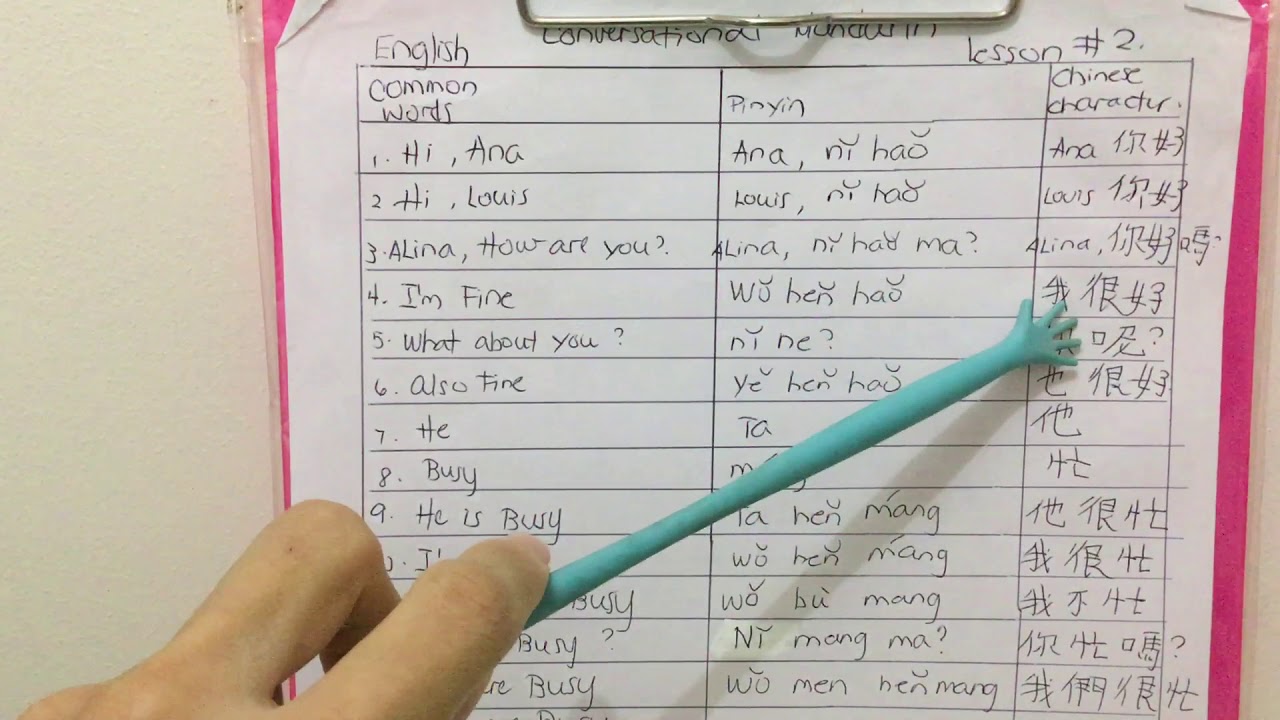 Conversational Mandarin
English Lesson #2.
Common Words Pinyin Chinese charactur.
1. Hi, Ana Ana, nǐ haǒ Ana 你好
2 Hi, Louis Louis, nǐ haǒ Louis 你好
3. ALina, How are you? ALina, nǐ haǒ ma? ALina, 你好嗎?
4. I'm Fine Wǒ heň haǒ 我很好
5. What about you? nǐ ne? 呢?
6. also Fine Yě heň haǒ 也很好
7. He Ta 他
8. Busy 忙
9. He is Busy Ta heň ḿang 他很忙
I' wǒ heň ḿang 我很忙
Busy wǒ bù mang 我不忙
Busy? Nǐ mang ma? 你忙嗎?
re Busy Wǒ men heňmang 我們很忙